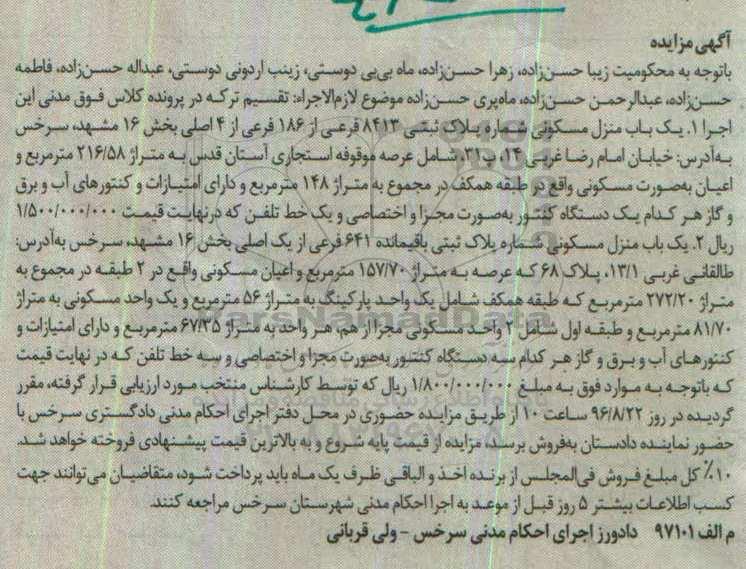 آگهی مزایده
باتوجه به محکومیت زیبا حسن‌زاده، زهرا حسن‌زاده، ماه بی‌بی دوستی، زینب اردونی دوستی، عبداله حسن‌زاده، فاطمه
حسن‌زاده، عبدالرحمن حسن‌زاده، ماه‌پری حسن‌زاده موضوع لازم‌الاجراء: تقسیم ترکه در پرونده کلاس فوق مدنی این
اجرا ۱. یک باب منزل مسکونی شماره پلاک ثبتی ۸۴۱۳ فرعی از ۱۸۶ فرعی از ۴ اصلی بخش ۱۶ مشهد، سرخس
به‌آدرس: خیابان امام رضا غربی ۱۴، پ۳۱، شامل عرصه موقوفه استجاری آستان قدس به متراژ ۲۱۶/۵۸ مترمربع و
اعیان به‌صورت مسکونی واقع در طبقه همکف در مجموع به متراژ ۱۴۸ مترمربع و دارای امتیازات و کنتورهای آب و برق
و گاز هر کدام یک دستگاه کنتور به‌صورت مجزا و اختصاصی و یک خط تلفن که درنهایت قیمت ۱/۵۰۰/۰۰۰/۰۰۰
ریال ۲. یک باب منزل مسکونی شماره پلاک ثبتی باقیمانده ۶۴۱ فرعی از یک اصلی بخش ۱۶ مشهد، سرخس به‌آدرس:
طالقانی غربی ۱۳/۱، پلاک ۶۸ که عرصه به متراژ ۱۵۷/۷۰ مترمربع و اعیان مسکونی واقع در ۲ طبقه در مجموع به
متراژ ۲۷۲/۲۰ مترمربع که طبقه همکف شامل یک واحد پارکینگ به متراژ ۵۶ مترمربع و یک واحد مسکونی به متراژ
۸۱/۷۰ مترمربع و طبقه اول شامل ۲ واحد مسکونی مجزا از هم، هر واحد به متراژ ۶۷/۳۵ مترمربع و دارای امتیازات و
کنتورهای آب و برق و گاز هر کدام سه دستگاه کنتور به‌صورت مجزا و اختصاصی و سه خط تلفن که در نهایت قیمت
که باتوجه به موارد فوق به مبلغ ۱/۸۰۰/۰۰۰/۰۰۰ ریال که توسط کارشناس منتخب مورد ارزیابی قرار گرفته، مقرر
گردیده در روز ۹۶/۸/۲۲ ساعت ۱۰ از طریق مزایده حضوری در محل دفتر اجرای احکام مدنی دادگستری سرخس با
حضور نماینده دادستان به‌فروش برسد، مزایده از قیمت پایه شروع و به بالاترین قیمت پیشنهادی فروخته خواهد شد.
۱۰٪ کل مبلغ فروش فی‌المجلس از برنده اخذ و الباقی ظرف یک ماه باید پرداخت شود، متقاضیان می‌توانند جهت
کسب اطلاعات بیشتر ۵ روز قبل از موعد به اجرا احکام مدنی شهرستان سرخس مراجعه کنند.
م الف ۹۷۱۰۱ دادورز اجرای احکام مدنی سرخس - ولی قربانی
ParsNamadData